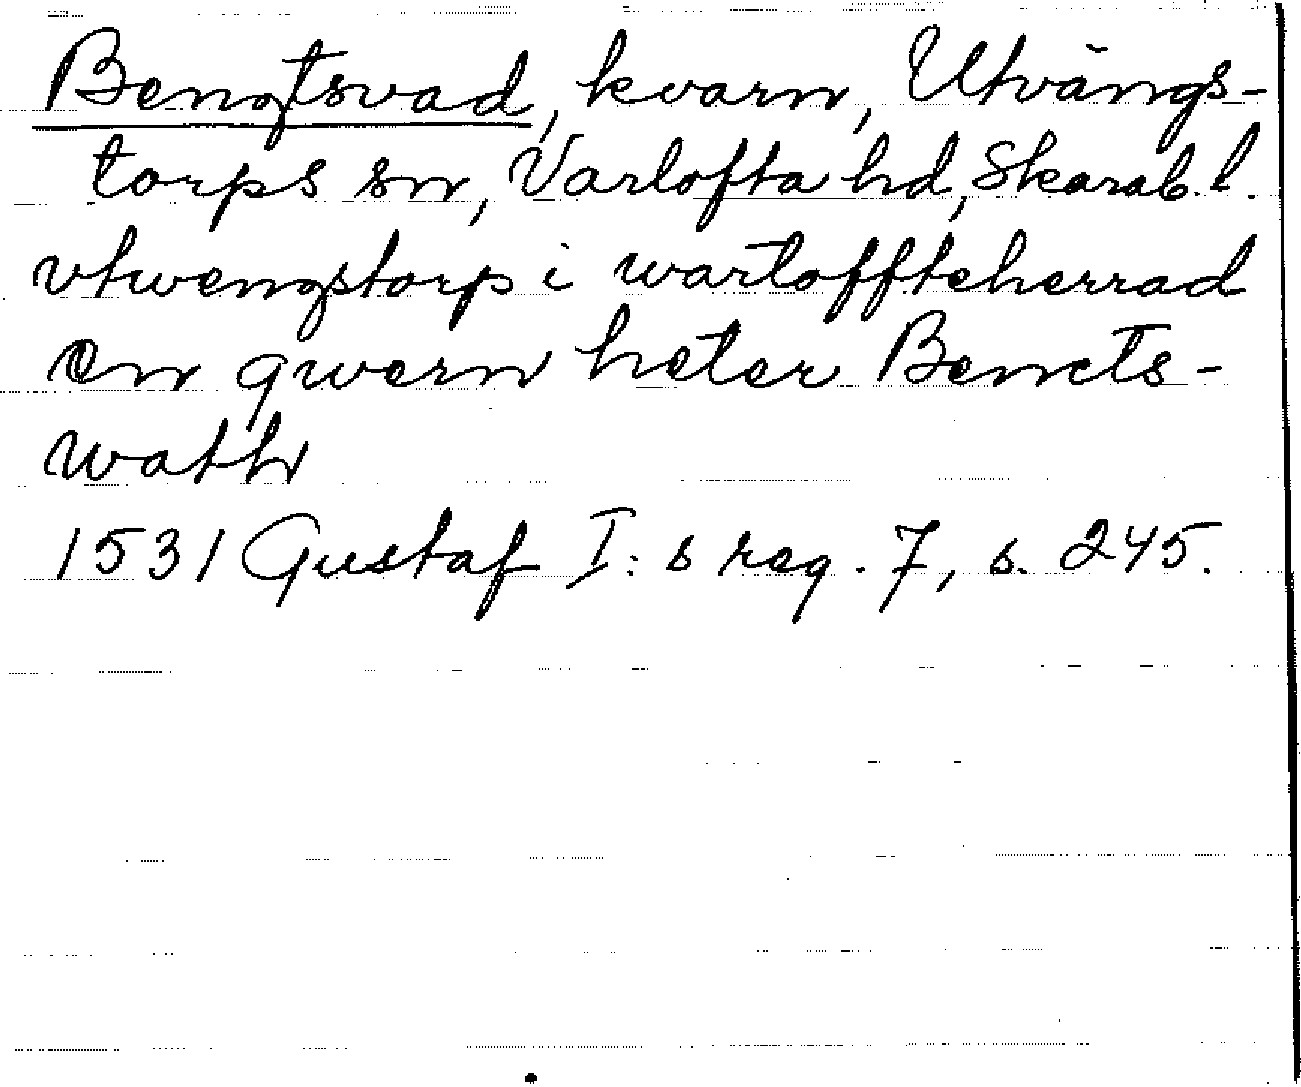 Bengtsvad, kvarn, Utvängs-
torps sn, Vartofta hd, Skarab. l.
vtwengstorp i wartoffteherrad
en qwern heter Benets-
wath
1531 Gustaf I: s reg. 7, s. 245.